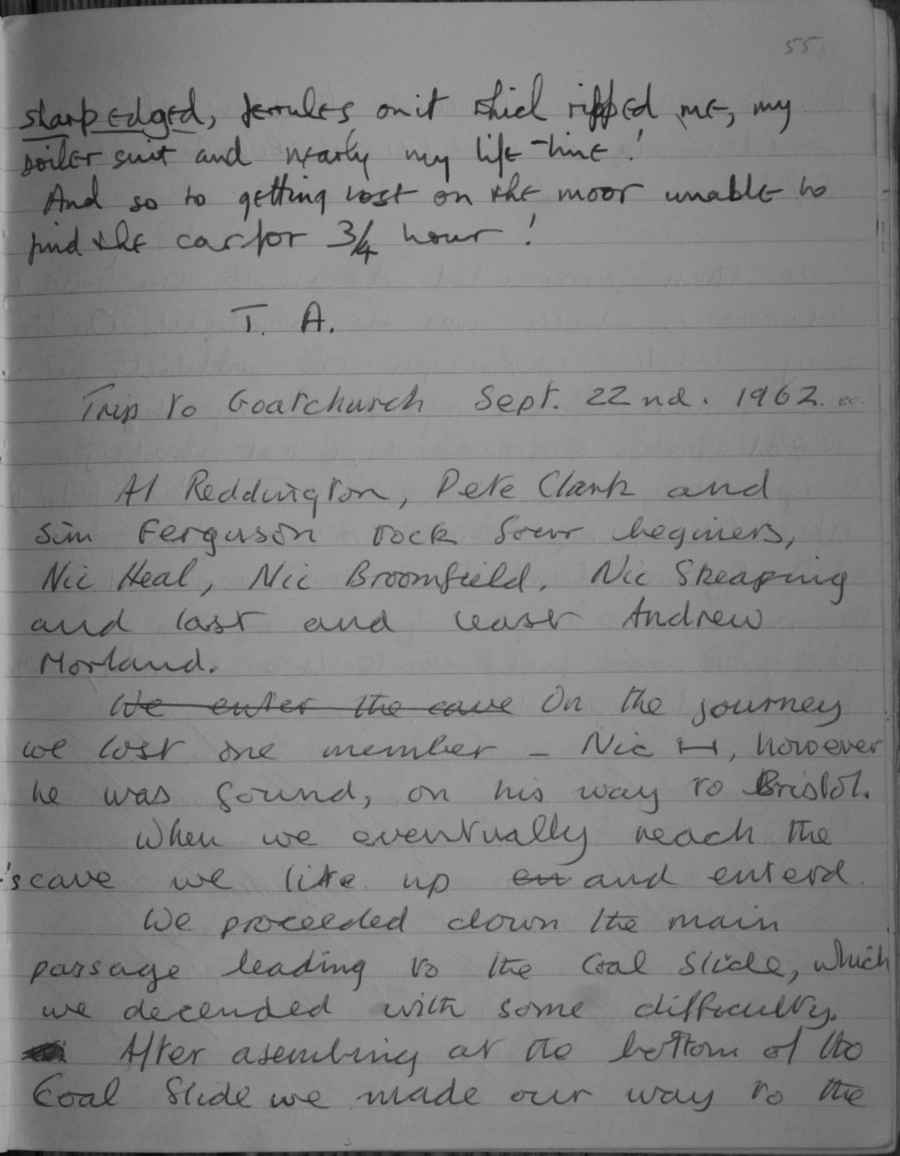 55.
sharp edged, ferrules on it which ripped me, my
boiler suit and nearly my life-line!
And so to getting lost on the moor unable to
find the car for 3/4 hour!
T. A.
Trip to Goatchurch Sept. 22nd. 1962.
Al Reddington, Pete Clark and
Sim Ferguson took four beginers,
Nic Heal, Nic Broomfield. Nic Skeaping
and last and least Andrew
Morland.
We enter the cave On the journey
we lost one member - Nic H, however
he was found, on his way to Bristol.
When we eventually reach the
cave we lite up en and enterd
We proceeded down the main
passage leading to the Coal Slide, which
we decended with some difficulty.
After asembing at the bottom of the
Coal Slide we made our way to the